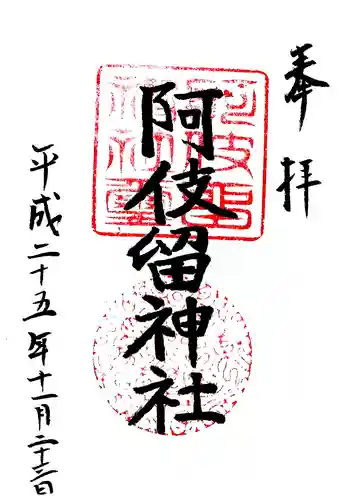 奉拝
阿伎留神社
平成二十五年十一月二十三日